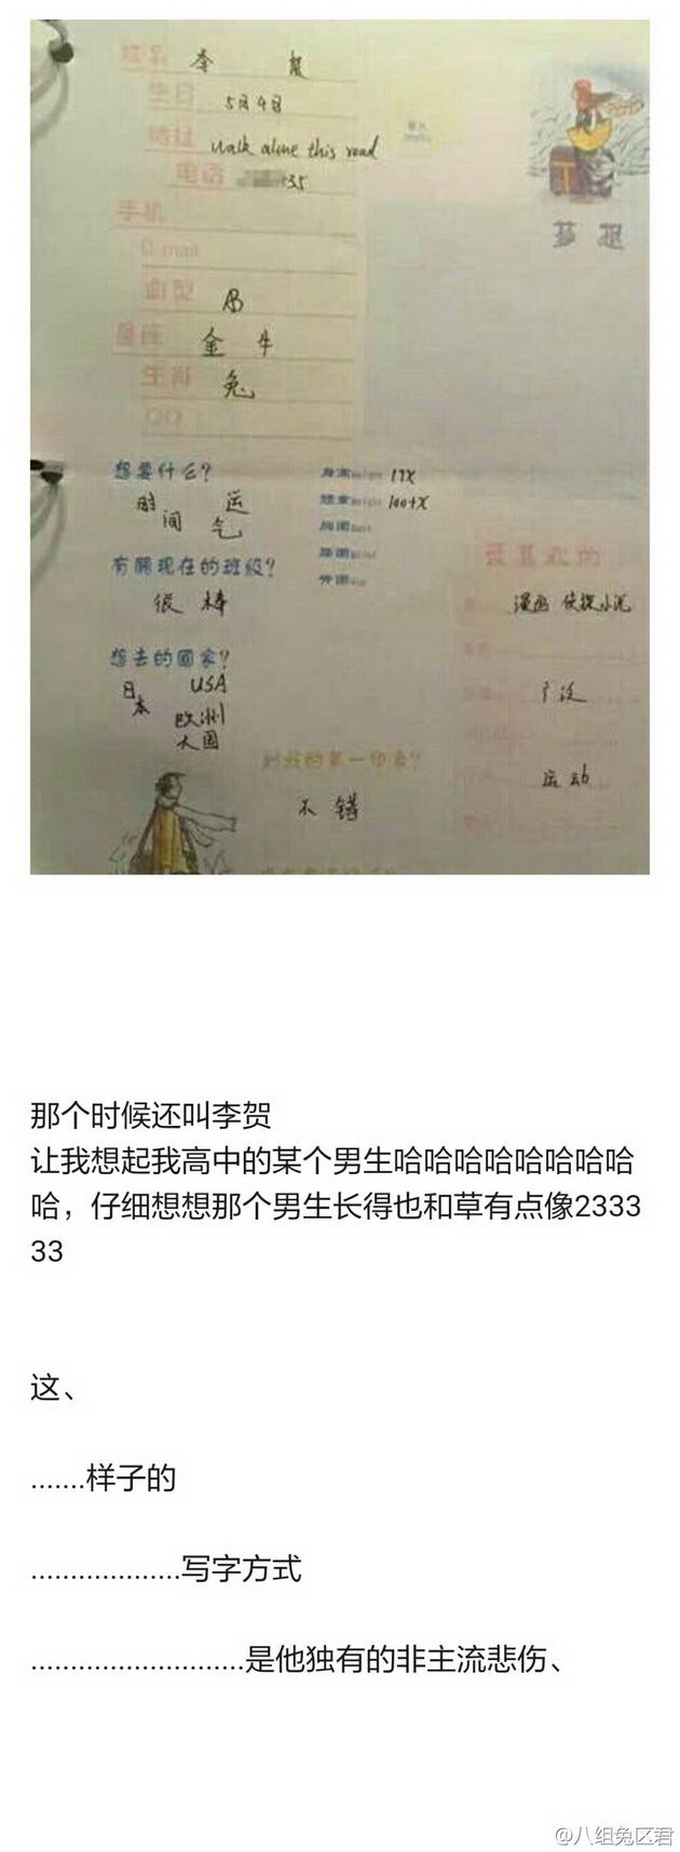 姓名 李 贺
生日 5月4日
地址 walk alone this road
电话 35
手机
E-mail
血型 B
星座 金 牛
生肖 兔
QQ
想要什么?
时间 运气
身高 17X
体重 100+X
胸围
腰围
有关现在的班级?
很 棒
想去的国家?
日本 USA
欧洲
大国
最喜欢的
漫画 侦探小说
广泛
运动
对我的第一印象?
不 错
那个时候还叫李贺
让我想起我高中的某个男生哈哈哈哈哈哈哈哈
哈，仔细想想那个男生长得也和草有点像2333
33
这、
.......样子的
...................写字方式
...........................是他独有的非主流悲伤、
@八组兔区君